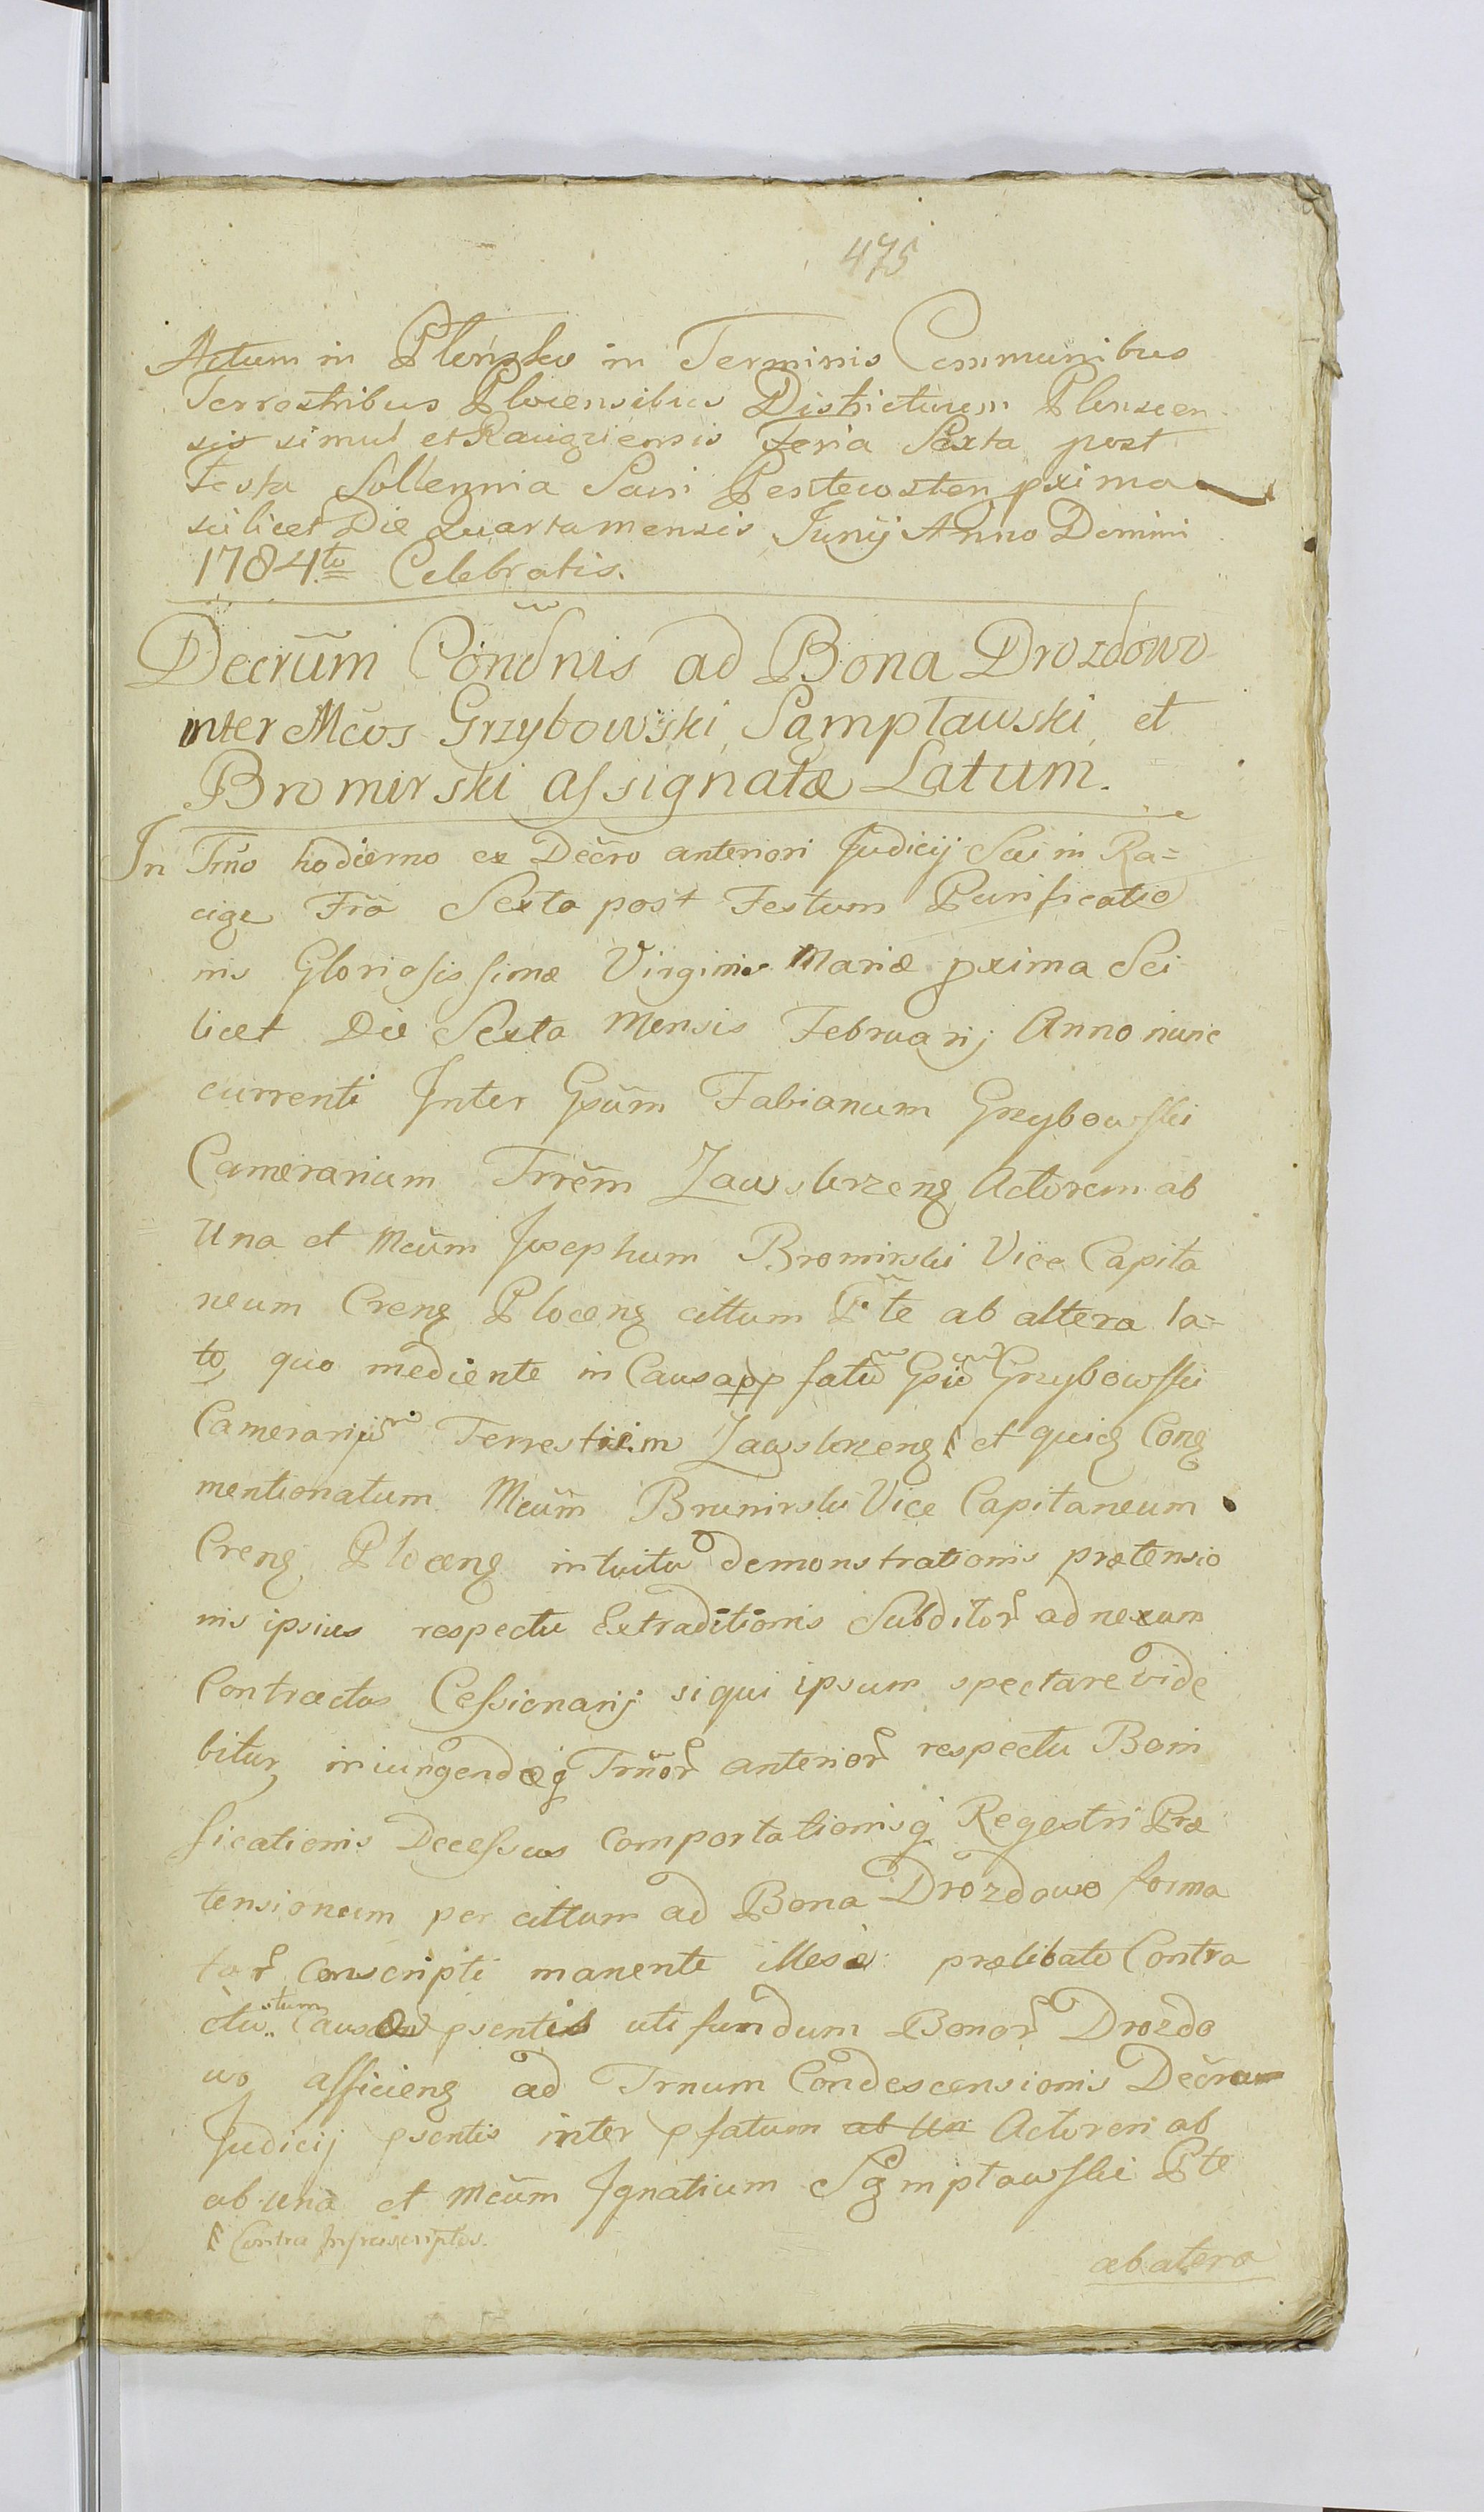 475
Actum in Płońsko in Terminis Communibus
Terrestribus Plocensibus Districtuum Plonscen
sis simul et Raciąziensis Feria Sexta post
Festa Sollennia Sacri Pentecosten pxima
scilicet Die Quarta mensis Junij Anno Domini
1784to Celebratis.
Decrum Condnis ad Bona Drozdowo
inter Mcos Grzybowski, Sąmpławski, et
Bromirski assignatæ Latum.
In Trno hodierno ex Decro anteriori Judicij Sui in Ra=
ciąz Fra Sexta post Festum Purificatio
nis Gloriosissimæ Virginis Mariæ pxima Sci
licet Die Sexta Mensis Februarij Anno nunc
currenti Inter Gsum Fabianum Grzybowski
Camerarium Trrem Zawskrzeng Actorem ab
Una et Mcum Josephum Bromirski Vice Capita
neum Creng Ploceng cittum Pte ab altera la=
to, quo mediente in Causa pp fatu Gsu Grzybowski
Camerariju Terrestrem Zawskrzeng et quicq Cong
mentionatum Mcum Bromirski Vice Capitaneum
Creng Ploceng intuitu demonstrationis prætensio
nis ipsius respectu Extraditionis Subditor ad nexum
Contractus Cessionarij si qui ipsum spectare vide
bitur, iniungendæq Trnor anterior respectu Boni
ficationis Decessus Comportationisq Regestri Præ
tensionum per cittum ad Bona Drozdowo forma
tar Conscripti manente illesæ prælibato Contra
ctu.. stum Causæ psentis uti fundum Bonor Drozdo
wo afficieng ad Trnum Condescensionis Decrum
Judicij psentis inter pfatum ab Un Actorem ab
ab una et Mcum Ignatium Sąmpławski Pte
Contra Infrascriptos.
ab atera